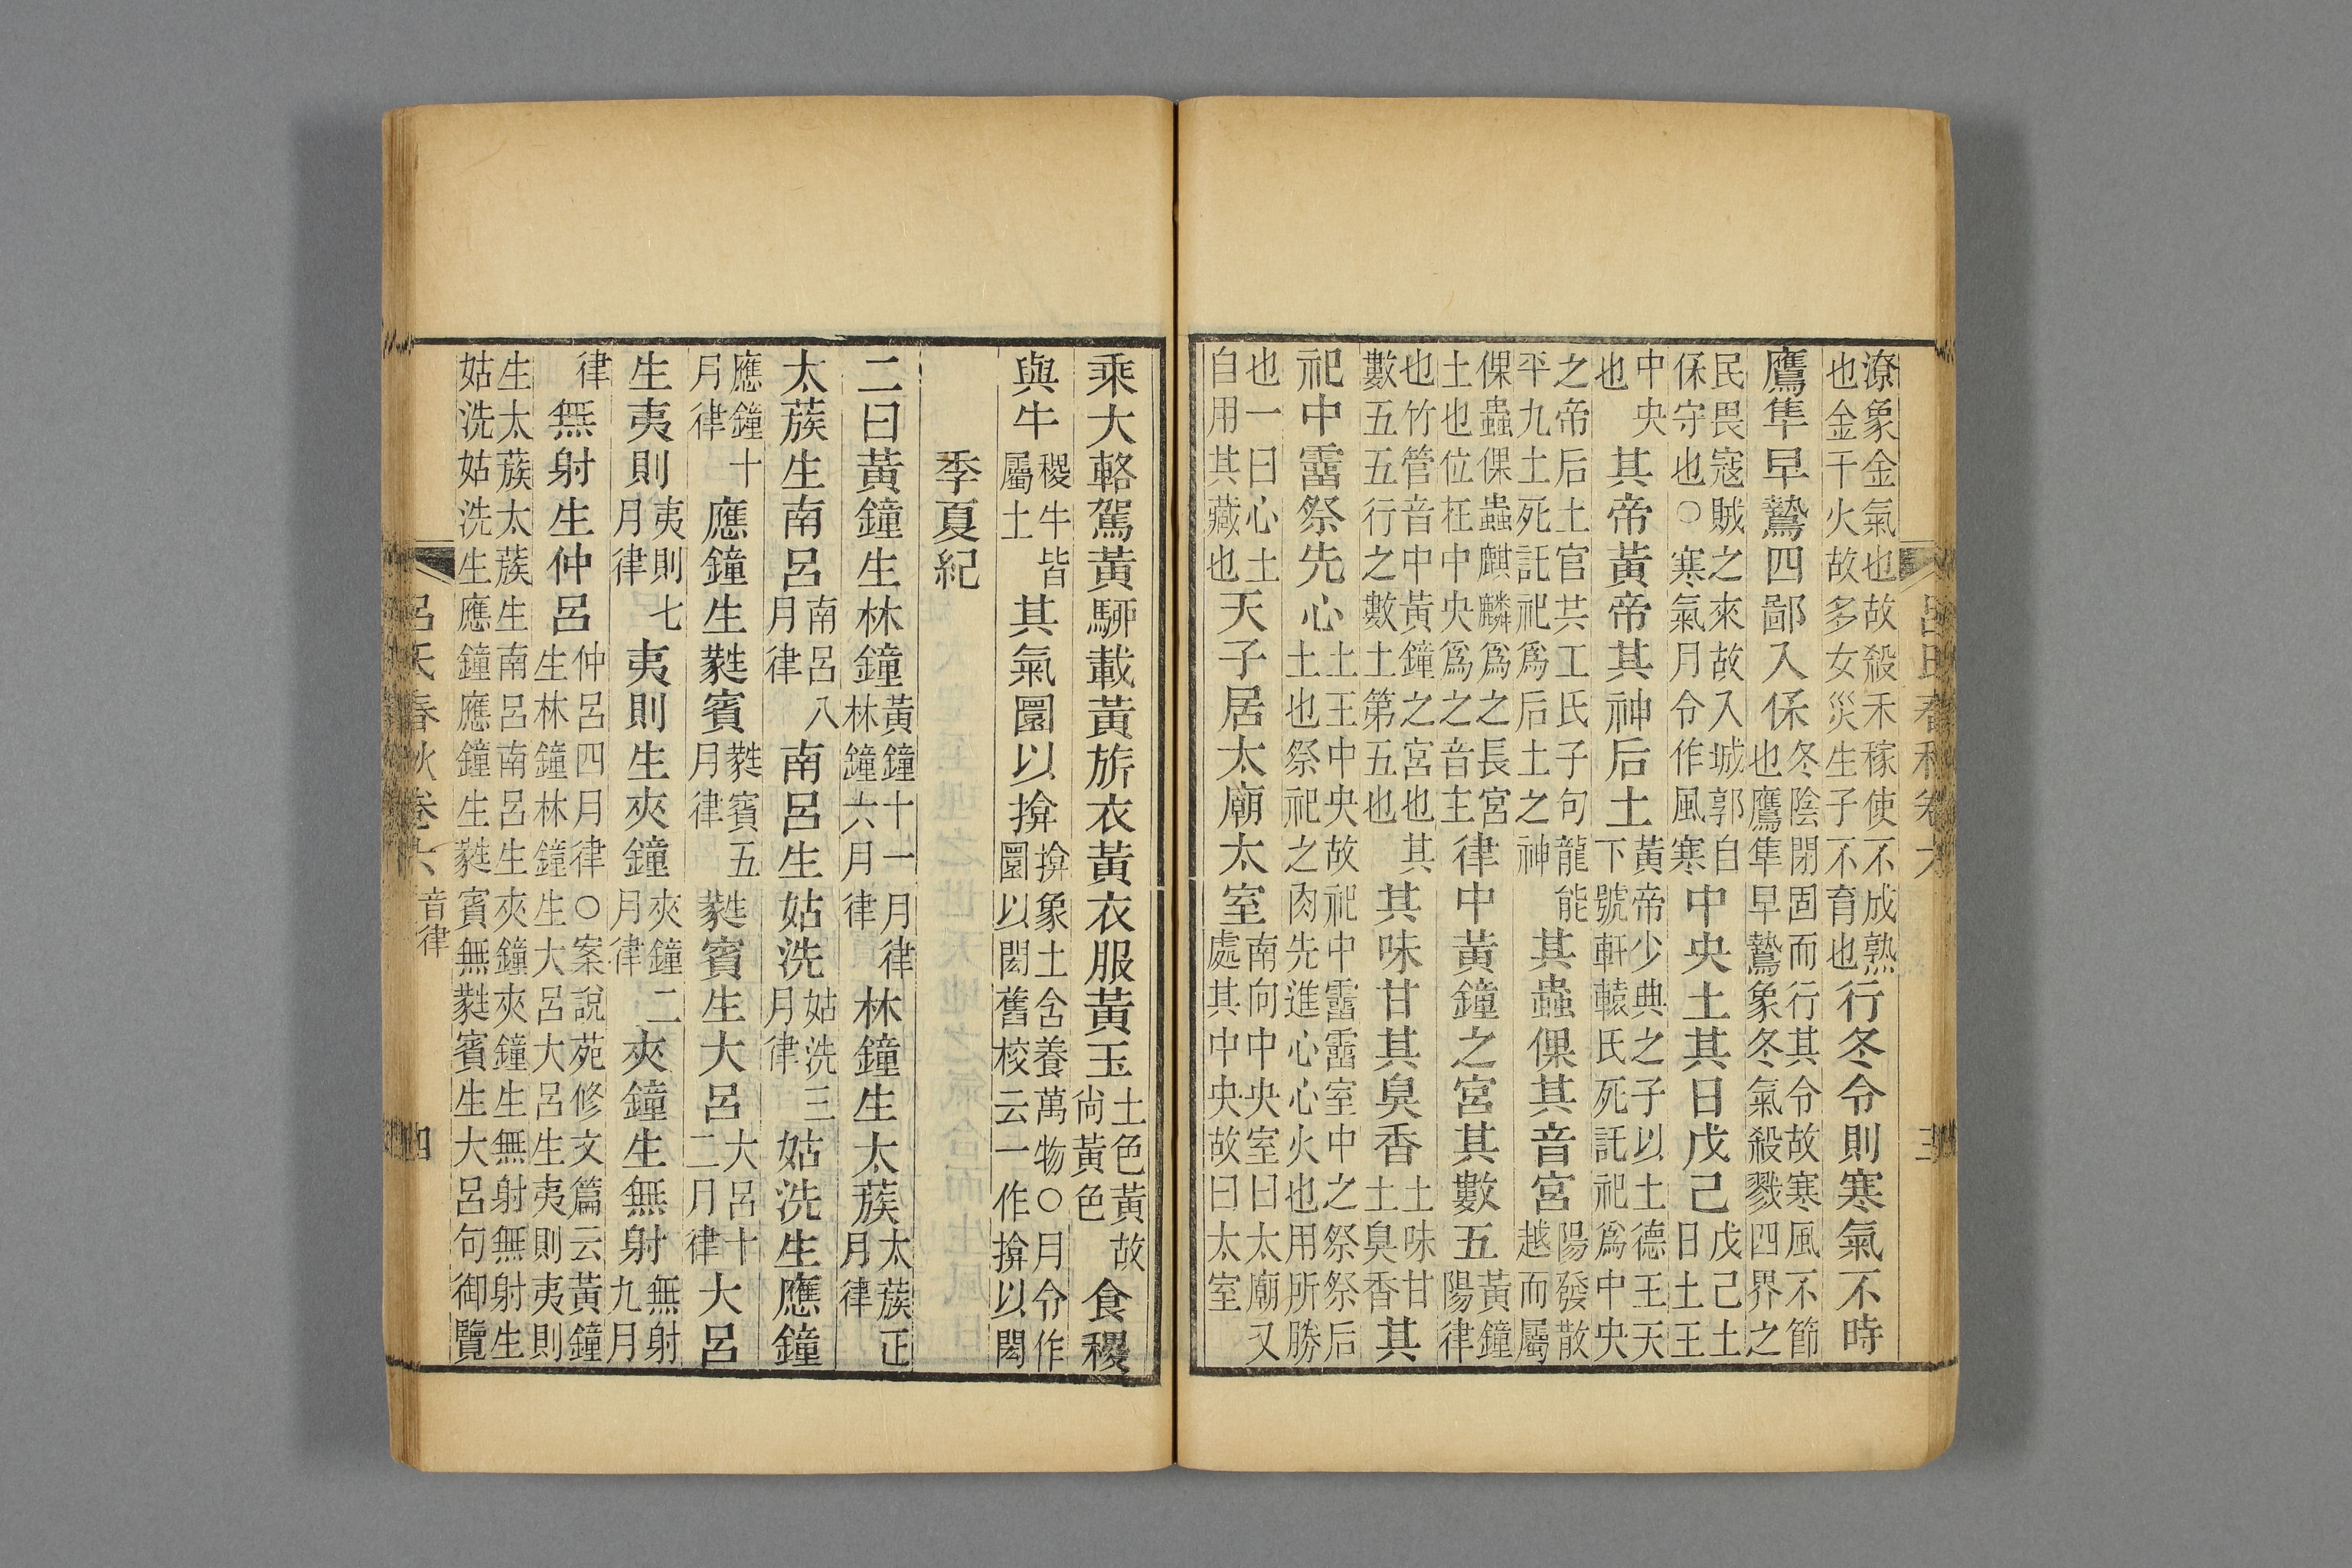 呂氏春秋卷六 三
潦象金氣也故殺禾稼使不成熟也金干火故多女災生子不育也行冬令則寒氣不時
鷹隼早鷙四鄙入保冬陰閉固而行其令故寒風不節也鷹隼早鷙象冬氣殺戮四界之
民畏寇賊之來故入城郭自保守也○寒氣月令作風寒中央土其日戊己戊己土日土王
中央也其帝黃帝其神后土黃帝少典之子以土德王天下號軒轅氏死託祀爲中央
之帝后土官共工氏子句龍能平九土死託祀爲后土之神其蟲倮其音宮陽發散越而屬
倮蟲倮蟲麒麟爲之長宮土也位在中央爲之音主律中黃鐘之宮其數五黃鐘陽律
也竹管音中黃鐘之宮也其數五五行之數土第五也其味甘其臭香土味甘土臭香其
祀中霤祭先心土王中央故祀中霤霤室中之祭祭后土也祭祀之肉先進心心火也用所勝
也一曰心土自用其藏也天子居太廟太室南向中央室曰太廟又處其中央故曰太室
乘大輅駕黃駵載黃旂衣黃衣服黃玉土色黃故尚黃色食稷
與牛稷牛皆屬土其氣圜以揜揜象土含養萬物○月令作圜以閎舊校云一作揜以閎
季夏紀
二曰黃鐘生林鐘黃鐘十一月律林鐘六月律林鐘生太蔟太蔟正月律
太蔟生南呂南呂八月律南呂生姑洗姑洗三月律姑洗生應鐘
應鐘十月律應鐘生蕤賓蕤賓五月律蕤賓生大呂大呂十二月律大呂
生夷則夷則七月律夷則生夾鐘夾鐘二月律夾鐘生無射無射九月
律無射生仲呂仲呂四月律○案說苑修文篇云黃鐘生林鐘林鐘生大呂大呂生夷則夷則
生太蔟太蔟生南呂南呂生夾鐘夾鐘生無射無射生姑洗姑洗生應鐘應鐘生蕤賓無蕤賓生大呂句御覽
呂氏春秋卷六 音律 四